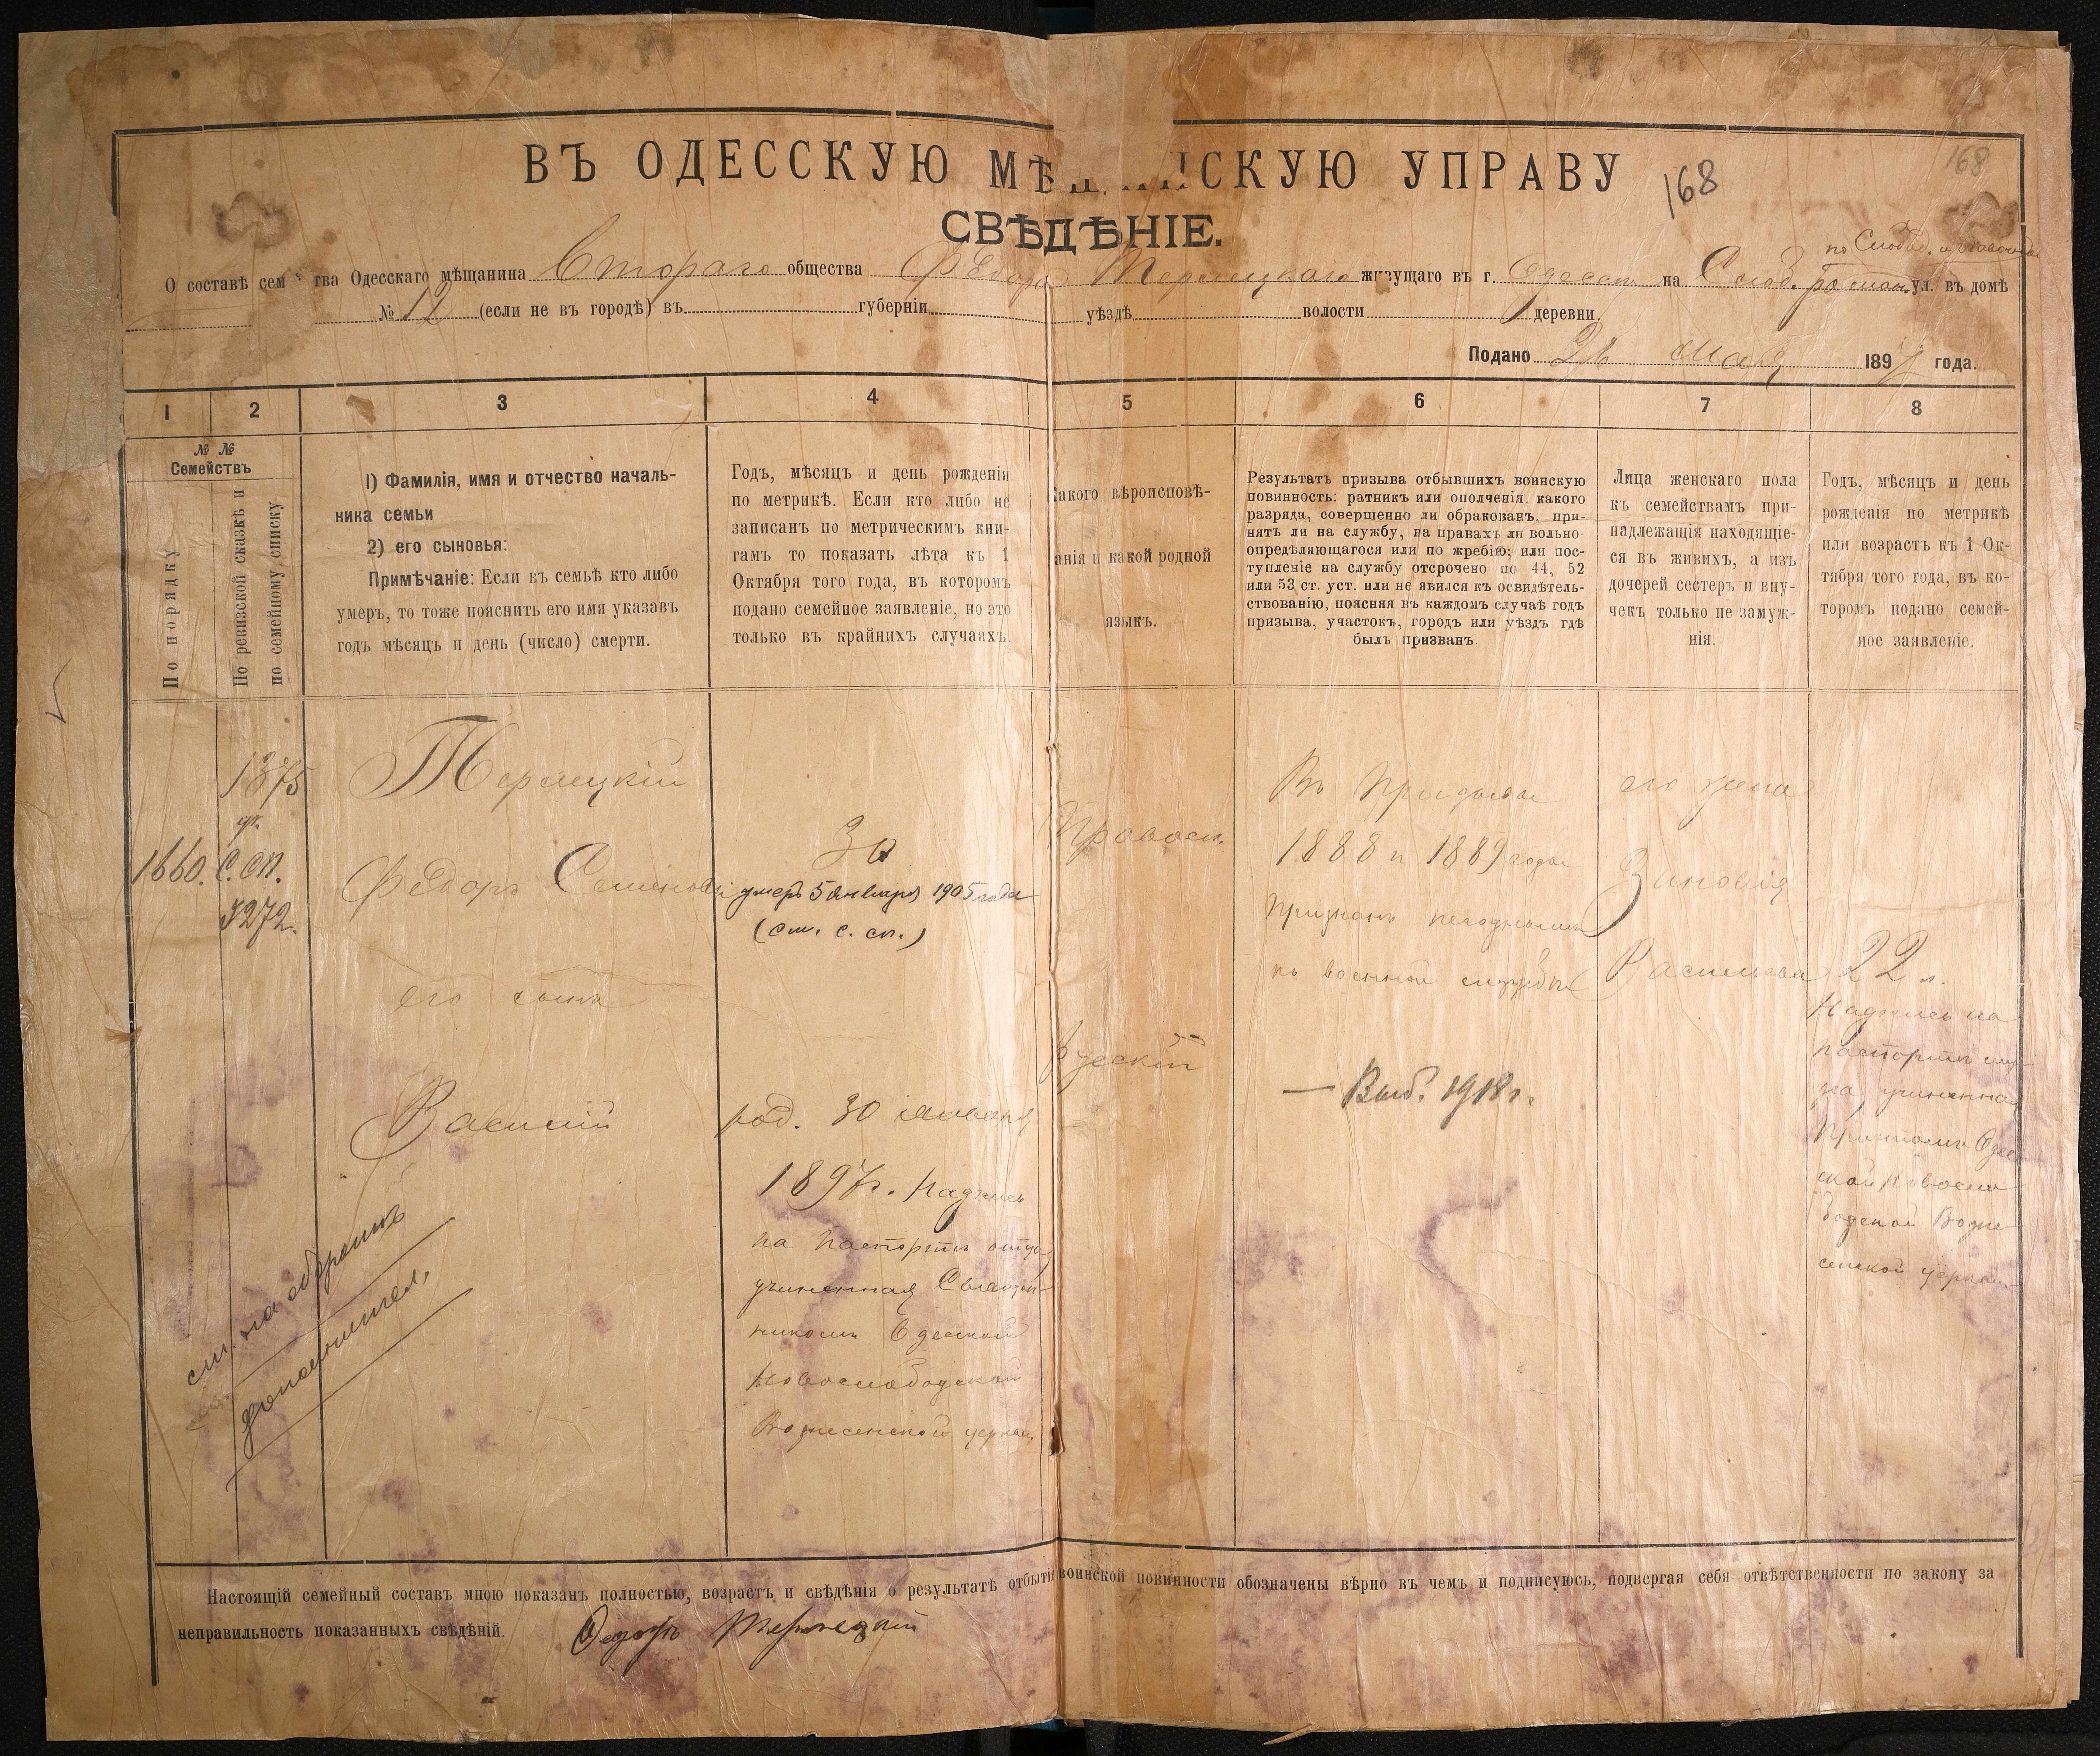 ВЪ ОДЕССКУЮ МѢ СКУЮ УПРАВУ
168
168
СВѢДѢНІЕ.
О составѣ сем тва Одесскаго мѣщанина Втораго общества Фёдора Терлецкаго живущаго въ г. Одессѣ на Слоб. Роман. ул. въ домѣ
№ 12 (если не въ городѣ) въ губерніи уѣздѣ волости деревни
Подано мая 1897 года.
1 2 3 4 5 6 7 8
№ №
Семействъ
По порядку
По ревизской сказкѣ и
по семейному списку
1) Фамилія, имя и отчество началь-
ника семьи
2) его сыновья:
Примѣчаніе: Если въ семьѣ кто либо
умеръ, то тоже пояснить его имя указавъ
годъ мѣсяцъ и день (число) смерти.
Годъ, мѣсяцъ и день рожденія
по метрикѣ. Если кто либо не
записанъ по метрическимъ кни-
гамъ то показать лѣта къ 1
Октября того года, въ которомъ
подано семейное заявленіе, но это
только въ крайнихъ случаяхъ.
акого вѣроисповѣ-
анія и какой родной
языкъ.
Результатъ призыва отбывшихъ воинскую
повинность: ратникъ или ополченія. какого
разряда, совершенно ли обракованъ, при-
нятъ ли на службу, на правахъ ли вольно-
опредѣляющагося или по жребію; или пос-
тупленіе на службу отсрочено по 44, 52
или 53 ст. уст. или не явился къ освидѣтель-
ствованію, поясняя въ каждомъ случаѣ годъ
призыва, участокъ, городъ или уѣздъ гдѣ
былъ призванъ.
Лица женскаго пола
къ семействамъ при-
надлежащія находящіе-
ся въ живихъ, а изъ
дочерей сестеръ и вну-
чекъ только не замуж-
нія.
Годъ, мѣсяцъ и день
рожденія по метрикѣ
или возрастъ къ 1 Ок-
тября того года, въ ко-
торомъ подано семей-
ное заявленіе.
1660.
1375
с. сп.
3272.
Терлецкій
Федоръ Семеновъ
его сынъ
Василій
см. на оборотѣ
дополнител.
30
умеръ 5 января 1905 года
(см. с. сп.)
род. 30 января
1897г. Надпись
на паспортѣ отца
учиненная Священ-
никомъ Одесской
Новослободской
Вознесенской церкви.
Правосл.
русскій
Въ призывы
1888 и 1889 годы
признанъ негоднымъ
къ военной службѣ
— Выб. 1918г.
его жена
Зиновія
Васильева
22 л.
Надпись на
паспортѣ му-
жа учиненная
Причтомъ Одес-
ской Новосло-
бодской Возне-
сенской церкви
Настоящій семейный составъ мною показанъ полностью, возрастъ и свѣдѣнія о результатѣ отбытія воинской повинности обозначены вѣрно въ чемъ и подписуюсь, подвергая себя отвѣтственности по закону за
неправильность показанныхъ свѣдѣній. Федоръ Терлецкій